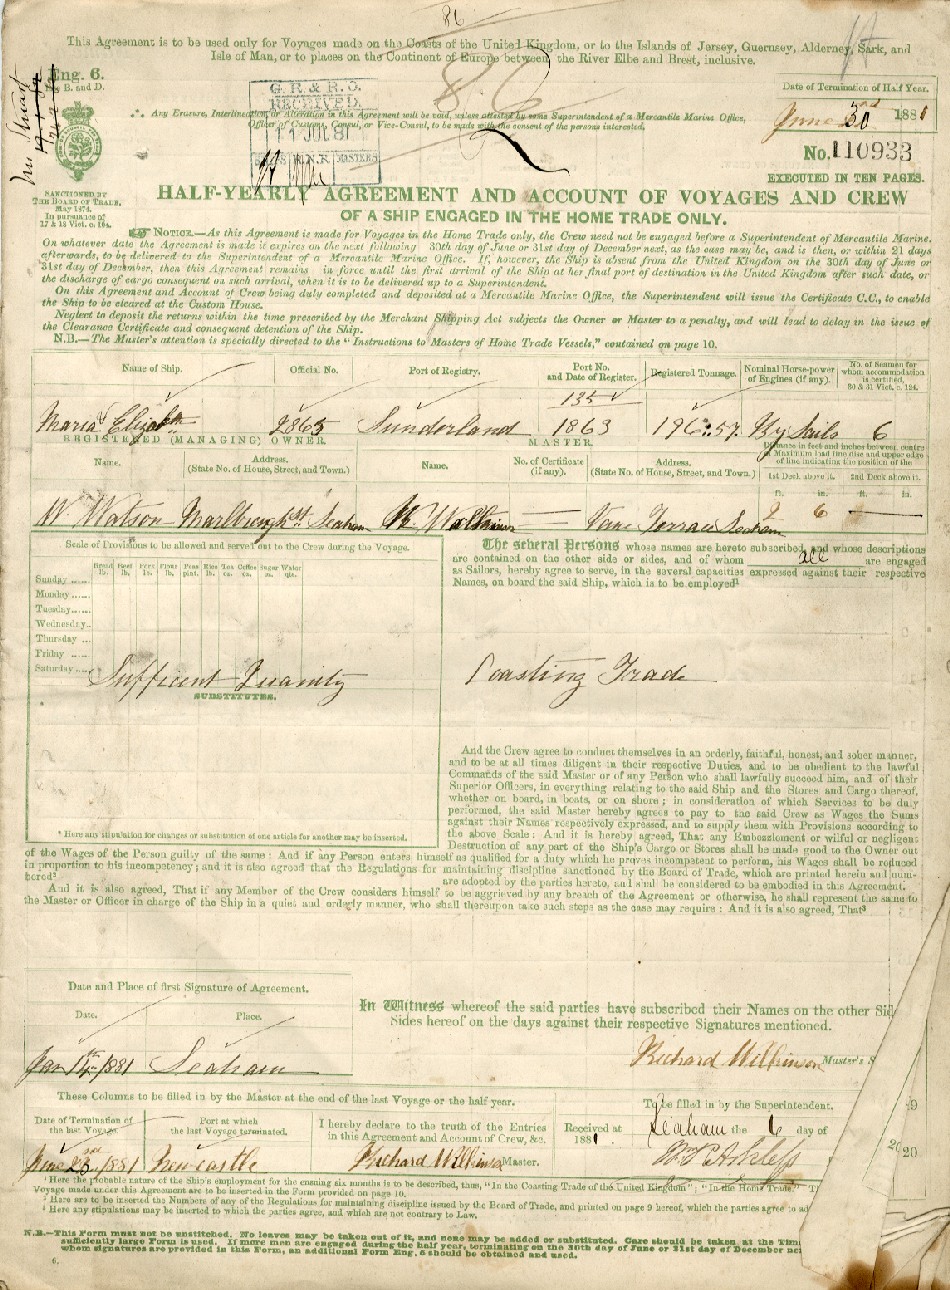 86
This Agreement is to be used only for Voyages made on the Coasts of the United Kingdom, or to the Islands of Jersey, Guernsey, Alderney, Sark, and
Isle of Man, or to places on the Continent of Europe between the River Elbe and Brest, inclusive.
Eng. 6.
B. and D.
G.R. & R.O.
RECEIVED.
JUL 81
R.N.R MASTERS
Date of Termination of Half Year.
June 30 1881
∴ Any Erasure, Interlineation, or Alteration in this Agreement will be void, unless attested by some Superintendent of a Mercantile Marine Office,
Officer of Customs, Consul, or Vice-Consul, to be made with the consent of the persons interested.
No. 110933
EXECUTED IN TEN PAGES.
SANCTIONED BY
THE BOARD OF TRADE,
May 1874.
In pursuance of
17 & 18 Vict. c. 104.
HALF-YEARLY AGREEMENT AND ACCOUNT OF VOYAGES AND CREW
OF A SHIP ENGAGED IN THE HOME TRADE ONLY.
NOTICE.—As this Agreement is made for Voyages in the Home Trade only, the Crew need not be engaged before a Superintendent of Mercantile Marine.
On whatever date the Agreement is made it expires on the next following 30th day of June or 31st day of December next, as the case may be, and is then, or within 21 days
afterwards, to be delivered to the Superintendent of a Mercantile Marine Office. If, however, the Ship is absent from the United Kingdom on the 30th day of June or
31st day of December, then this Agreement remains in force until the first arrival of the Ship at her final port of destination in the United Kingdom after such date, or
the discharge of cargo consequent on such arrival, when it is to be delivered up to a Superintendent.
On this Agreement and Account of Crew being duly completed and deposited at a Mercantile Marine Office, the Superintendent will issue the Certificate C.C., to enable
the Ship to be cleared at the Custom House.
Neglect to deposit the returns within the time prescribed by the Merchant Shipping Act subjects the Owner or Master to a penalty, and will lead to delay in the issue of
the Clearance Certificate and consequent detention of the Ship.
N.B.—The Master's attention is specially directed to the "Instructions to Masters of Home Trade Vessels," contained on page 10.
Name of Ship. Official No. Port of Registry. Port No. and Date of Register. Registered Tonnage. Nominal Horse-power of Engines (if any). No. of Seamen for whom accommodation is certified, 30 & 31 Vict. c. 124.
135
Maria Elizabth Sunderland 1863 196.57 By Sails 6
REGISTERED (MANAGING) OWNER. MASTER.
Name. Address. (State No. of House, Street, and Town.) Name. No. of Certificate (if any). Address. (State No. of House, Street, and Town.)
Distance in feet and inches between centre of Maximum load line disc and upper edge of line indicating the position of the
1st Deck above it. 2nd Deck above it.
ft. in. ft. in.
W Watson Marlbrough St Seaham R Wilkinson — Vane Terrace Seaham 2 6 —
Scale of Provisions to be allowed and served out to the Crew during the Voyage.
Bread lb. Beef lb. Pork lb. Flour lb. Peas pint. Rice lb. Tea oz. Coffee oz. Sugar oz. Water qts.
Sunday ....
Monday .....
Tuesday.....
Wednesday...
Thursday ...
Friday .....
Saturday....
Sufficent Quanity
SUBSTITUTES.
* Here any stipulation for changes or substitution of one article for another may be inserted.
The several Persons whose names are hereto subscribed, and whose descriptions
are contained on the other side or sides, and of whom all are engaged
as Sailors, hereby agree to serve, in the several capacities expressed against their respective
Names, on board the said Ship, which is to be employed¹
Coasting Trade
And the Crew agree to conduct themselves in an orderly, faithful, honest, and sober manner,
and to be at all times diligent in their respective Duties, and to be obedient to the lawful
Commands of the said Master or of any Person who shall lawfully succeed him, and of their
Superior Officers, in everything relating to the said Ship and the Stores and Cargo thereof,
whether on board, in boats, or on shore; in consideration of which Services to be duly
performed, the said Master hereby agrees to pay to the said Crew as Wages the Sums
against their Names respectively expressed, and to supply them with Provisions according to
the above Scale: And it is hereby agreed, That any Embezzlement or wilful or negligent
Destruction of any part of the Ship's Cargo or Stores shall be made good to the Owner out
of the Wages of the Person guilty of the same: And if any Person enters himself as qualified for a duty which he proves incompetent to perform, his Wages shall be reduced
in proportion to his incompetency; and it is also agreed that the Regulations for maintaining discipline sanctioned by the Board of Trade, which are printed herein and num-
bered² are adopted by the parties hereto, and shall be considered to be embodied in this Agreement.
And it is also agreed, That if any Member of the Crew considers himself to be aggrieved by any breach of the Agreement or otherwise, he shall represent the same to
the Master or Officer in charge of the Ship in a quiet and orderly manner, who shall thereupon take such steps as the case may require: And it is also agreed, That³
Date and Place of first Signature of Agreement.
Date. Place.
Jan 14th 1881 Seaham
In Witness whereof the said parties have subscribed their Names on the other Sid
Sides hereof on the days against their respective Signatures mentioned.
Richard Wilkinson Master's S
These Columns to be filled in by the Master at the end of the last Voyage or the half year.
Date of Termination of the last Voyage. Port at which the last Voyage terminated.
June 23rd 1881 Newcastle
I hereby declare to the truth of the Entries
in this Agreement and Account of Crew, &c.
Richard Wilkinson Master.
To be filled in by the Superintendent.
Received at Seaham the 6 day of
1881
19
20 20
¹ Here the probable nature of the Ship's employment for the ensuing six months is to be described, thus, "In the Coasting Trade of the United Kingdom"; "In the Home Trade." T
Voyage made under this Agreement are to be inserted in the Form provided on page 10.
² Here are to be inserted the Numbers of any of the Regulations for maintaining discipline issued by the Board of Trade, and printed on page 9 hereof, which the parties agree to ad
³ Here any stipulations may be inserted to which the parties agree, and which are not contrary to Law.
N.B.—This Form must not be unstitched. No leaves may be taken out of it, and none may be added or substituted. Care should be taken at the Tim
sufficiently large Form is used. If more men are engaged during the half year, terminating on the 30th day of June or 31st day of December nex
whom signatures are provided in this Form, an additional Form Eng. 6 should be obtained and used.
6.